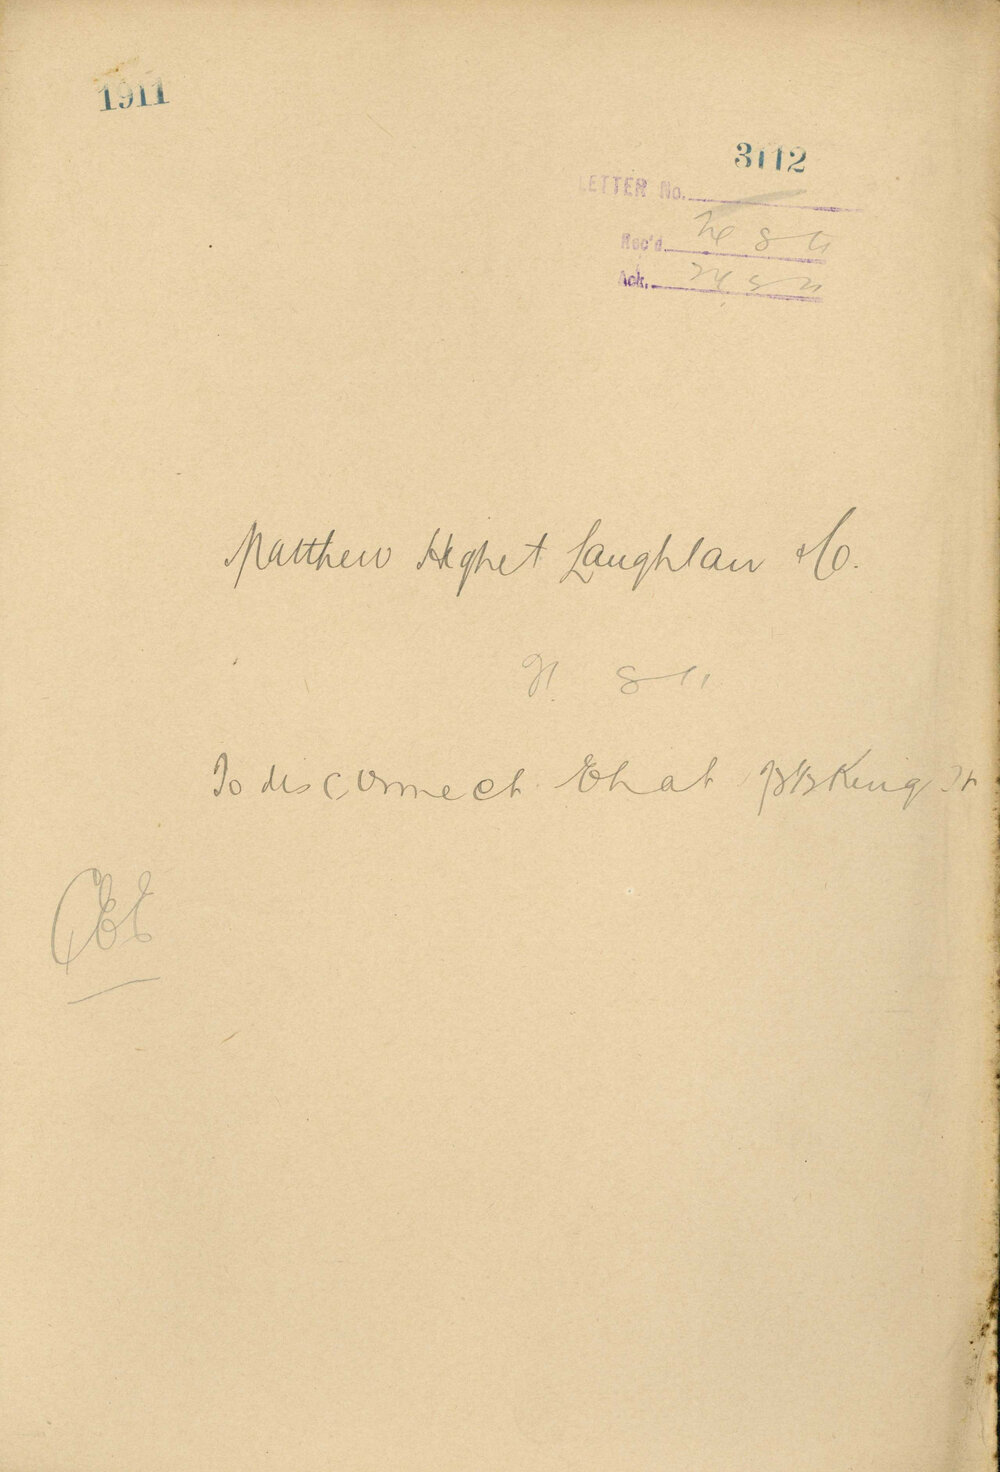 1911
3112
LETTER No.
Rec'd 24 8 11
Ack. 24 8 11
Matthew Heghet Laughlan & Co.
21 8 11
To disconnect E L at King St